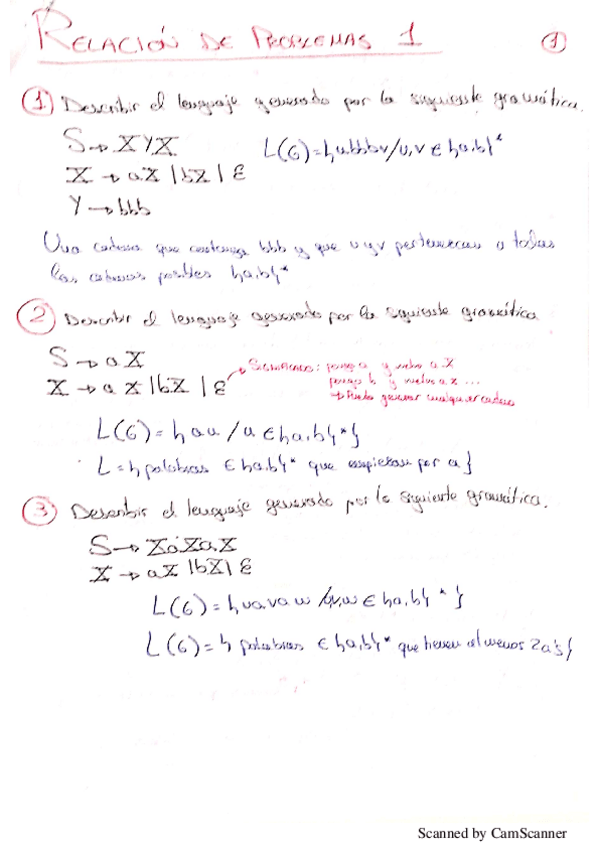 RELACIÓN DE PROBLEMAS 1
1
1 Describir el lenguaje generado por la siguiente gramática.
S → XYX L(G) = {ubbbv / u,v ∈ {a,b}*
X → aX | bX | ε
Y → bbb
Una cadena que contenga bbb y que u y v pertenezcan a todas
las cadenas posibles {a,b}*
2 Describir el lenguaje generado por la siguiente gramática
S → aX
X → aX | bX | ε
Significado: pongo a y vuelvo a X
pongo b y vuelvo a x ...
→ Puedo generar cualquier cadena
L(G) = {au / u ∈ {a,b}*}
L = {palabras ∈ {a,b}* que empiezan por a}
3 Describir el lenguaje generado por la siguiente gramática.
S → XaXaX
X → aX | bX | ε
L(G) = {uavaw /u,v,w ∈ {a,b}*}
L(G) = {palabras ∈ {a,b}* que tienen al menos 2 a's}
Scanned by CamScanner